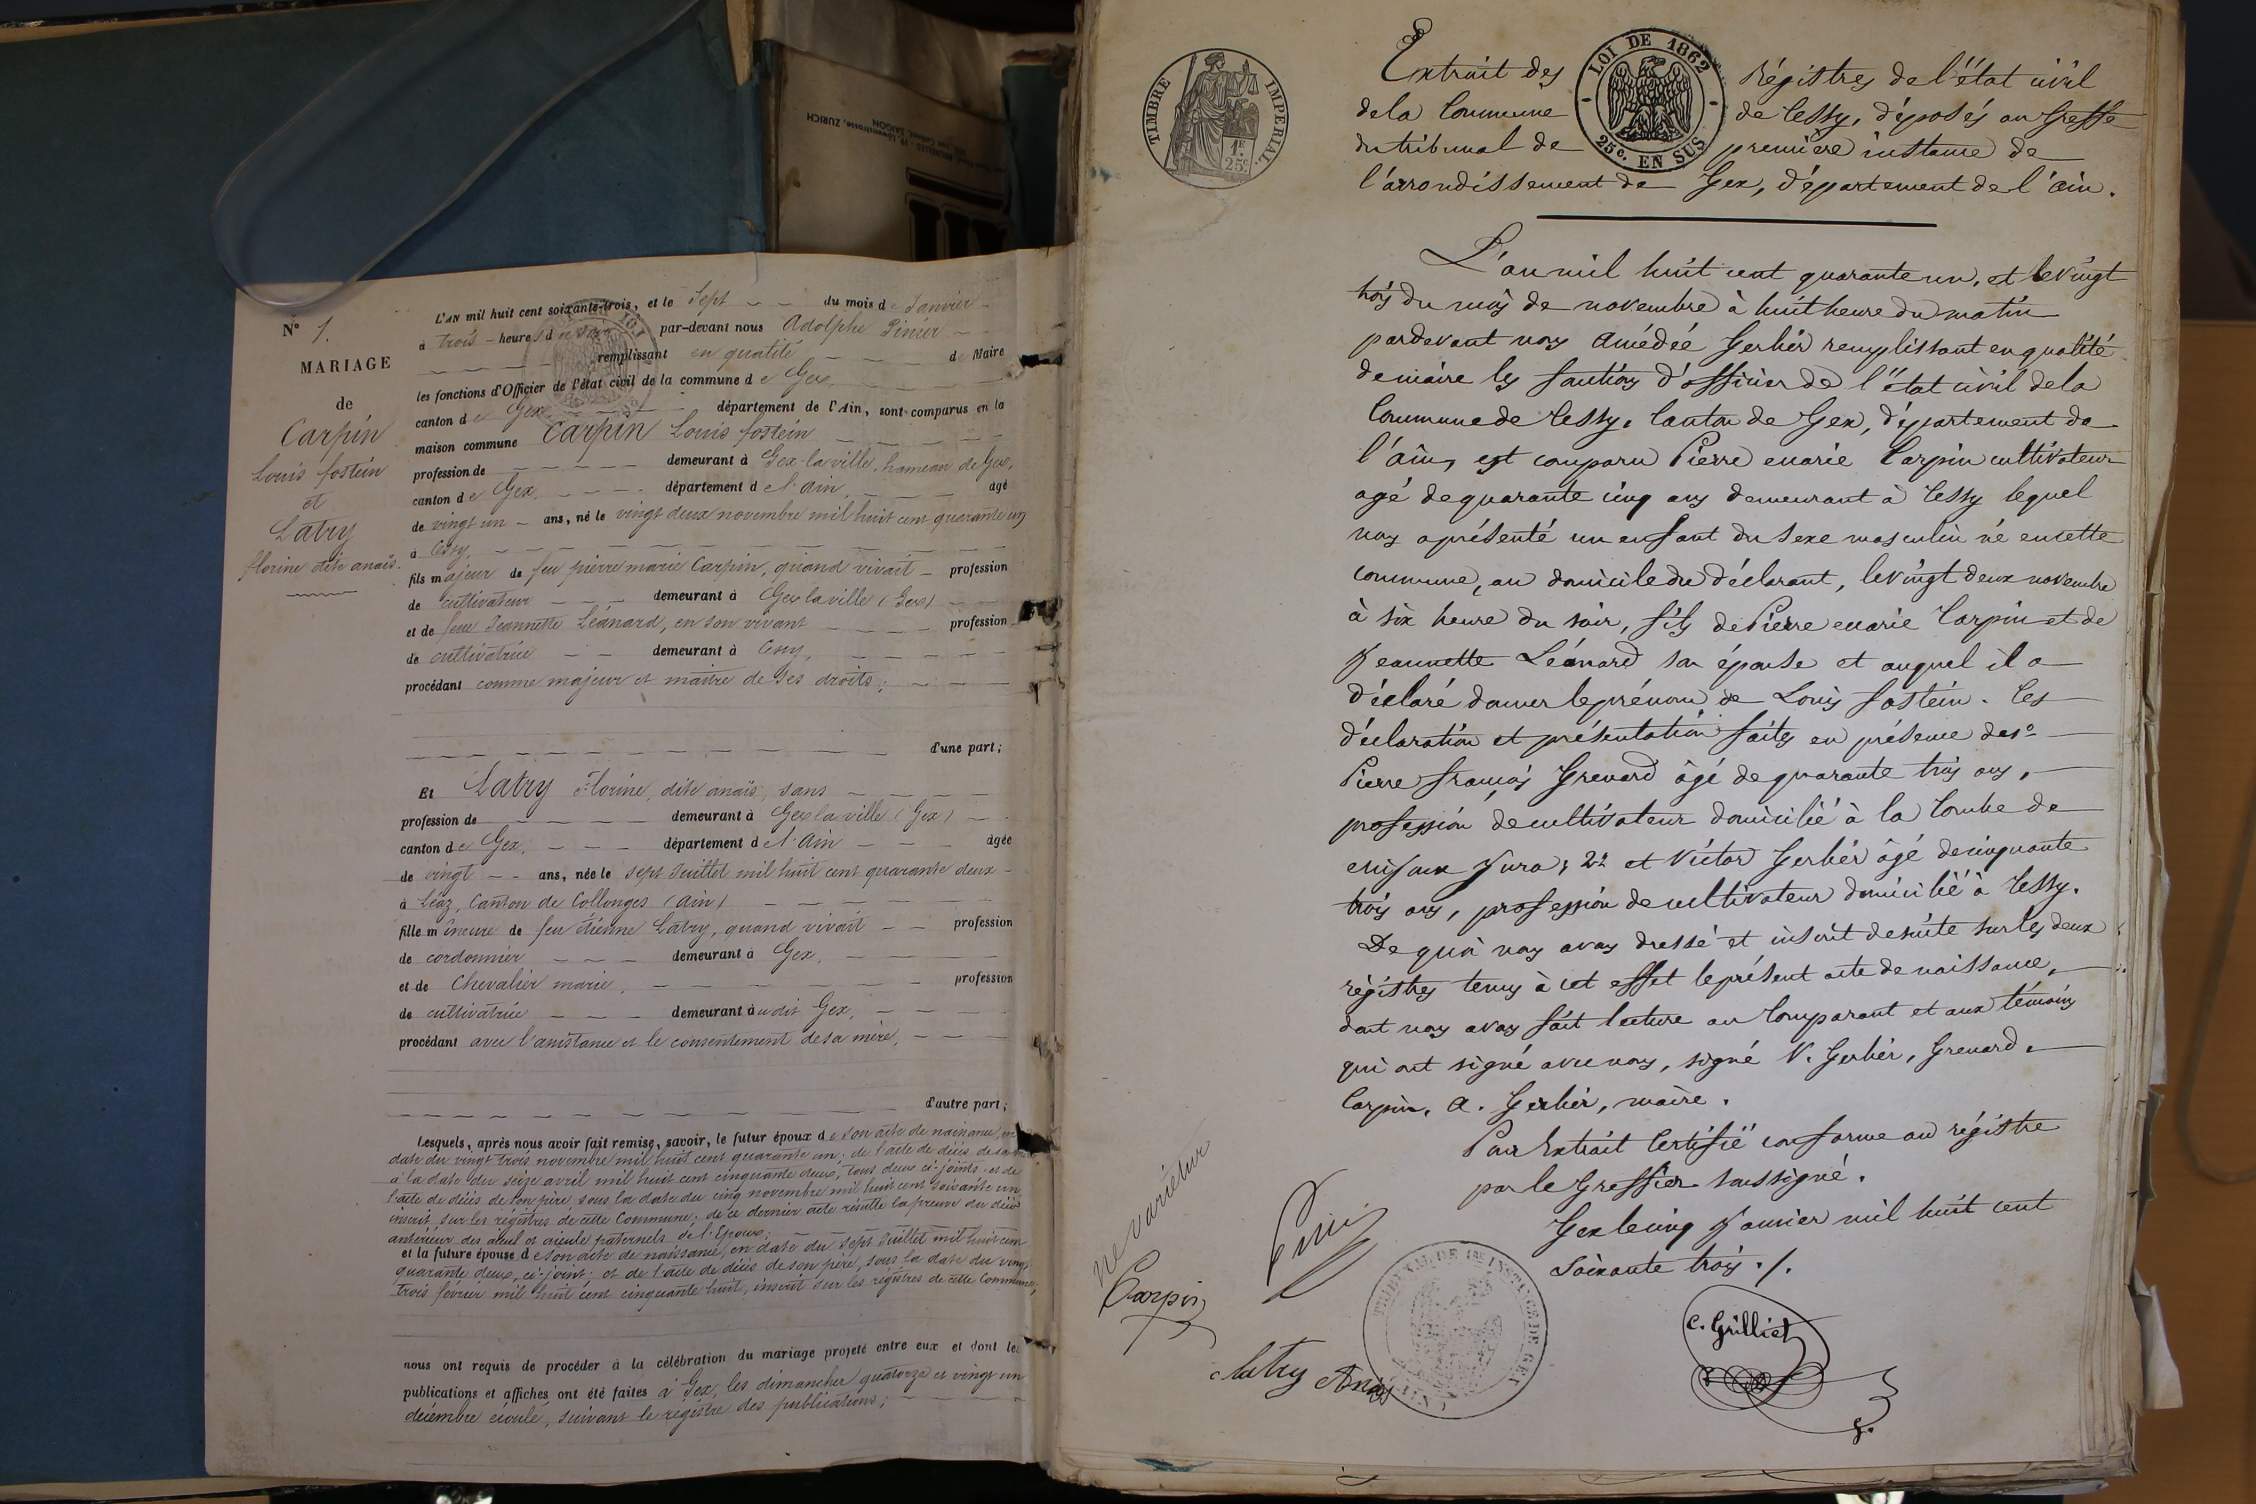 N° 1.
MARIAGE
de
Carpin
Louis fostein
et
Latry
florine dite anaïs.
L'AN mil huit cent soixante-trois, et le Sept du mois de Janvier
à trois heures du soir par-devant nous Adolphe Pinier
remplissant en qualité de Maire
les fonctions d'Officier de l'état civil de la commune de Gex,
canton de Gex département de l'Ain, sont comparus en la
maison commune Carpin Louis fostein
profession de demeurant à Gex-la-ville, hameau de Gex,
canton de Gex, département de l'Ain, agé
de vingt un ans, né le vingt deux novembre mil huit cent quarante un
à Cessy,
fils majeur de feu pierre marie Carpin, quand vivait profession
de cultivateur demeurant à Gex la ville (Gex)
et de feue Jeannette Léanard, en son vivant profession
de cultivatrice demeurant à Cessy,
procédant comme majeur et maître de ses droits;
d'une part;
Et Latry Florine, dite anaïs, sans
profession de demeurant à Gex la ville (Gex)
canton de Gex, département de l'Ain âgée
de vingt ans, née le sept Juillet mil huit cent quarante deux
à Léaz, Canton de Collonges (Ain)
fille mineure de feu étienne Latry, quand vivait profession
de cordonnier demeurant à Gex,
et de Chevalier marie, profession
de cultivatrice demeurant audit Gex,
procédant avec l'assistance et le consentement de sa mère,
d'autre part;
Lesquels, après nous avoir fait remise, savoir, le futur époux de son acte de naissance, en
date du vingt trois novembre mil huit cent quarante un; de l'acte de décès de sa
à la date du seize avril mil huit cent cinquante deux, tous deux ci-joints et de
l'acte de décès de son père, sous la date du cinq novembre mil huit cent soixante un
inscrit sur les régistres de cette Commune; de ce dernier acte résulte la preuve du décès
antérieur des aïeul et aïeule paternels de l'Epoux;
et la future épouse de son acte de naissance, en date du sept Juillet mil huit cent
quarante deux, ci-joint; et de l'acte de décès de son père, sous la date du vingt
trois février mil huit cent cinquante huit, inscrit sur les régistres de cette Commune;
nous ont requis de procéder à la célébration du mariage projeté entre eux et dont les
publications et affiches ont été faites à Gex, les dimanches quatorze et vingt un
décembre écoulé, suivant le régistre des publications;
TIMBRE IMPERIAL.
1F.
25c.
LOI DE 1862
25c. EN SUS
Extrait des régistres de l'état civil
de la Commune de Cessy, déposés au Greffe
du tribunal de première instance de
l'arrondissement de Gex, département de l'ain.
L'an mil huit cent quarante un, et le vingt
trois du mois de novembre à huit heure du matin
pardevant nous Amédée Gerbier remplissant en qualité
de maire les fontions d'officier de l'état civil de la
Commune de Cessy, Canton de Gex, département de
l'ain, est comparu Pierre marie Carpin cultivateur
agé de quarante cinq ans demeurant à Cessy lequel
nous a présenté un enfant du sexe masculin né en cette
commune, au domicile du déclarant, le vingt deux novembre
à six heure du soir, fils de Pierre marie Carpin et de
Jeannette Léonard son épouse et auquel il a
déclaré donner le prénom de Louis fostein. Ces
déclaration et présentation faites en présence de 1°
Pierre françois Grenard âgé de quarante trois ans,
profession de cultivateur domicilié à la Combe de
mijoux Jura; 2° et Victor Gerbier âgé de cinquante
trois ans, profession de cultivateur domicilié à Cessy.
De quoi nous avons dressé et inscrit de suite sur les deux
régistres tenus à cet effet le présent acte de naissance,
dont nous avons fait lecture au Comparant et aux témoins
qui ont signé avec nous, signé V. Gerbier, Grenard,
Carpin, A. Gerbier, maire.
Pour Extrait Certifié conforme au régistre
par le Greffier soussigné.
Gex le cinq Janvier mil huit cent
soixante trois ./.
ne varietur
Carpin
Latry Anaïs
TRIBUNAL DE 1RE INSTANCE DE GEX
C. Grilliet